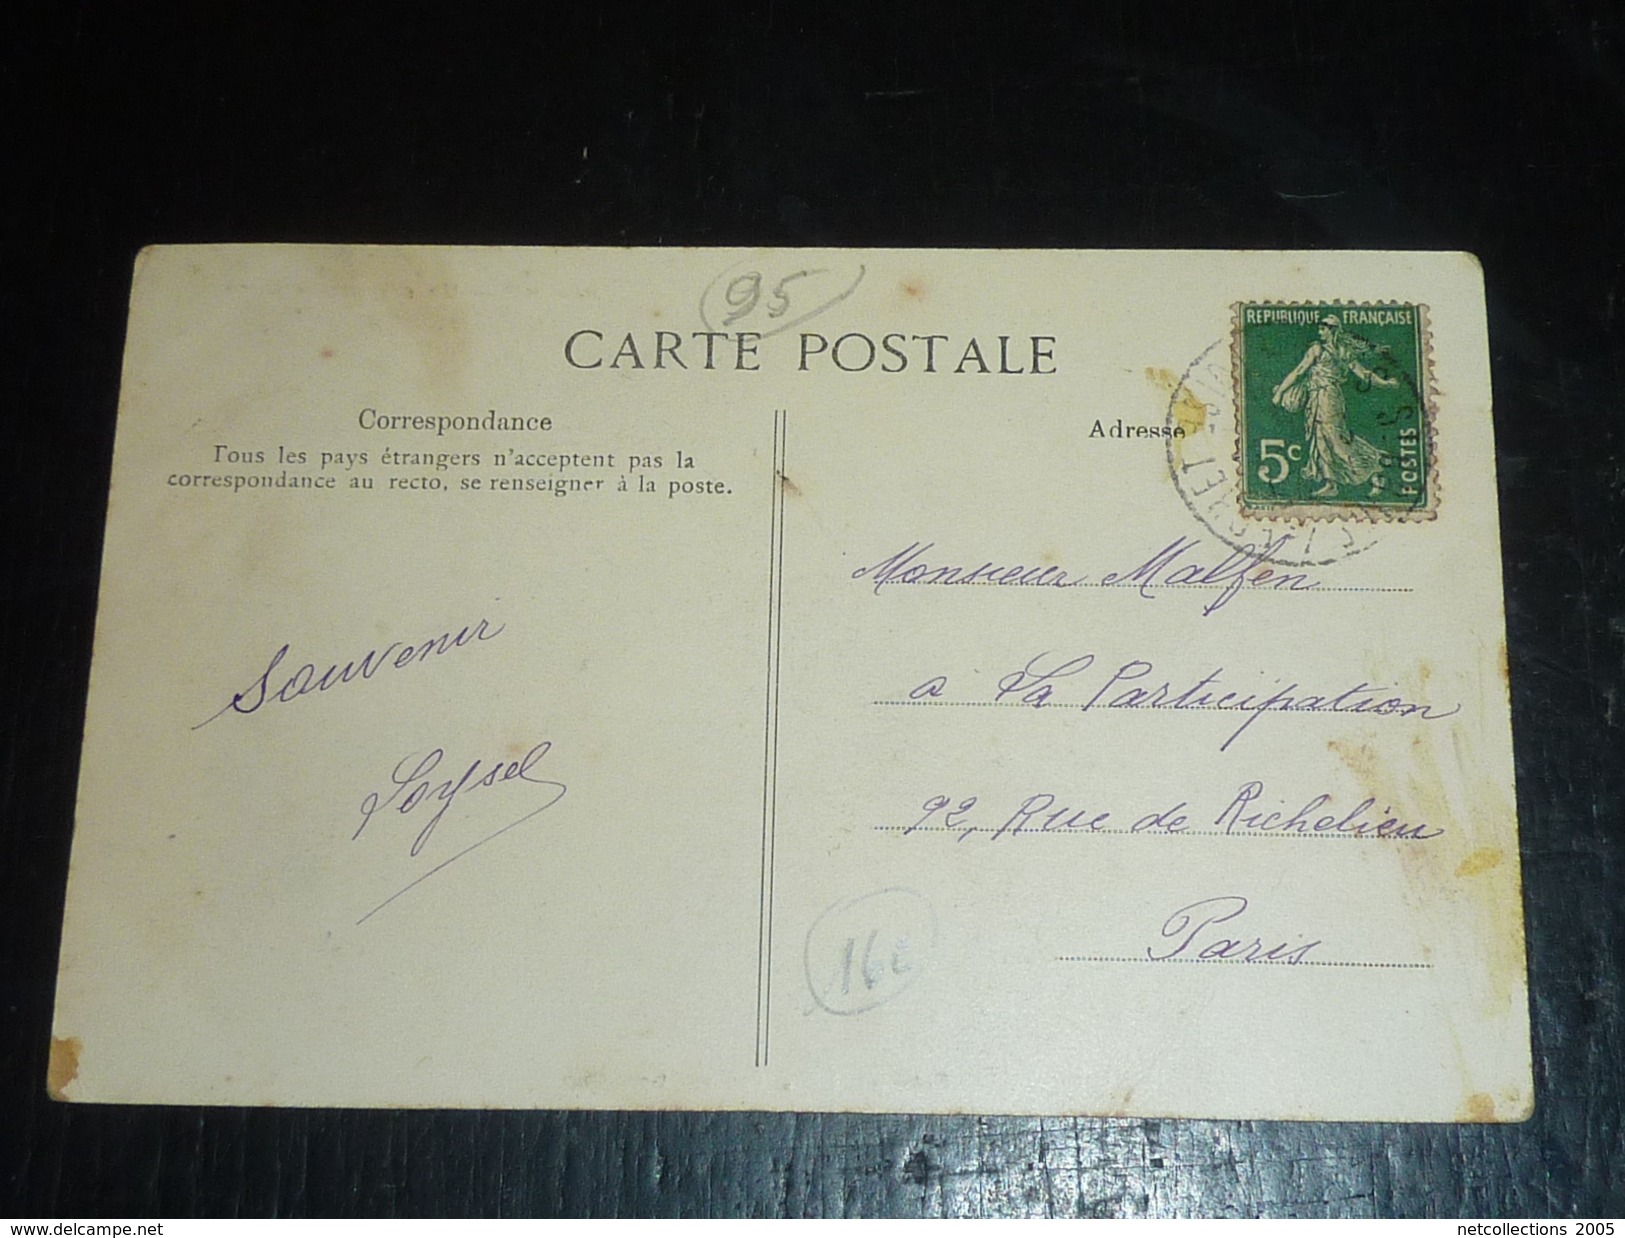 95
CARTE POSTALE
Correspondance
Tous les pays étrangers n'acceptent pas la
correspondance au recto, se renseigner à la poste.
Adresse
REPUBLIQUE FRANÇAISE
5c
POSTES
Souvenir
Loysel
Monsieur Malfen
a La Participation
92, Rue de Richelieu
Paris
delcampe.net
netcollections 2005